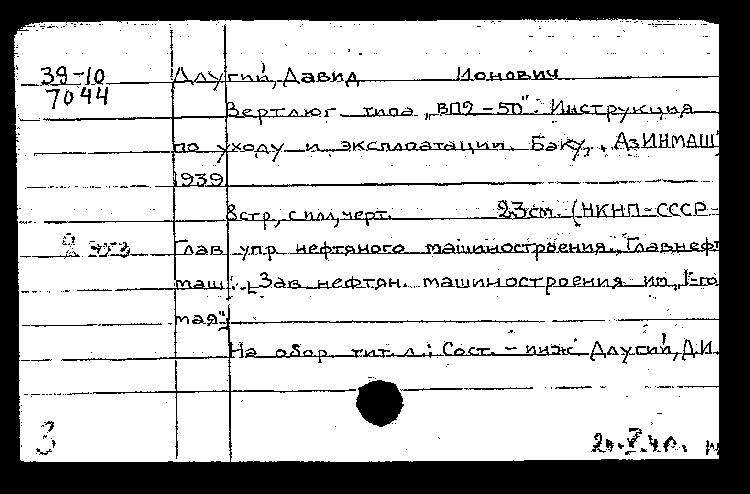 39-10 Длугий, Давид Ионович
7044
Вертлюг типа „ВП2-50". Инструкция
по уходу и эксплоатации. Баку, „АзИНМАШ"
1939
8 стр., с илл, черт. 23 см. (НКНП-СССР-
Глав упр нефтяного машиностроения. „Главнефт
маш". Зав нефтян. машиностроения им „1-го
мая")
На обор. тит. л.: Сост. - инж Длугий, Д.И.
3